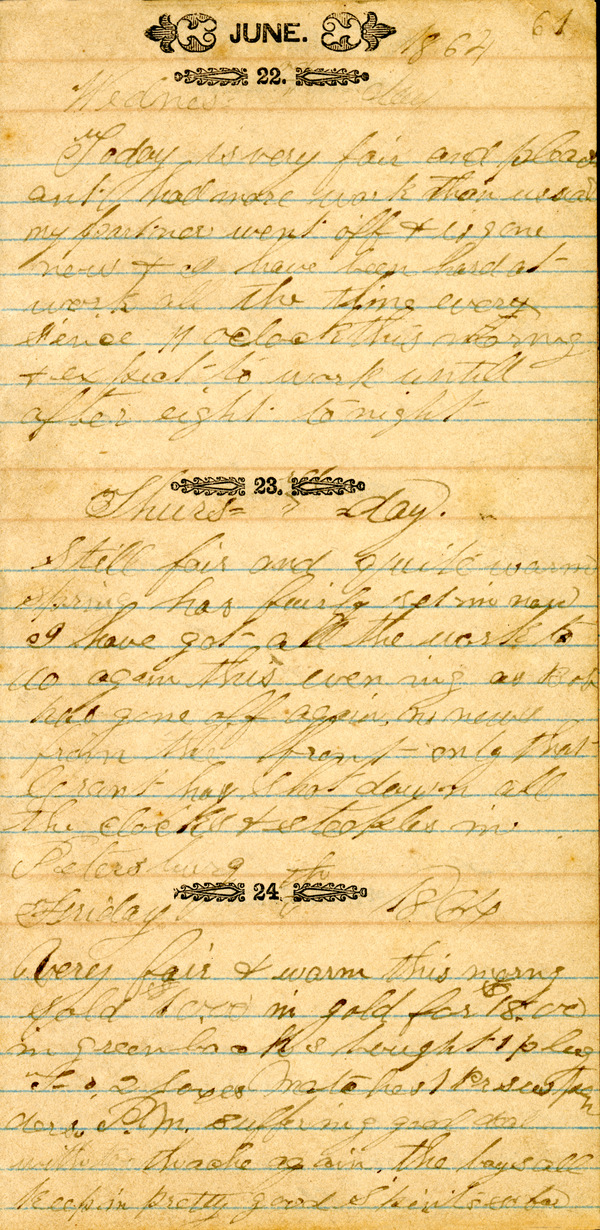 JUNE. 1864 61
22.
Wednes= day
Today is very fair and pleas
ant I had more work than usual
my partner went off & is gone
now & I have been hard at
work all the time every
sience 7 oclock this morning
& expect to work untill
after eight to night
23.
Thurs= day.
Still fair and quite warm
spring has fairly set in now
I have got all the work to
do again this evening as Bob
has gone off again. no news
from the front only that
Grant has shot down all
the clocks & steeples in
Petersburg
24 th
Friday 1864
Very fair & warm this morng
sold $7.00 in gold for $18.00
in greenbacks bought 1 plug
T— 2 boxes Matches 1 Pr suspen
ders. P.M. suffering good deal
with toothache again. the boys all
keep in pretty good spirits so far